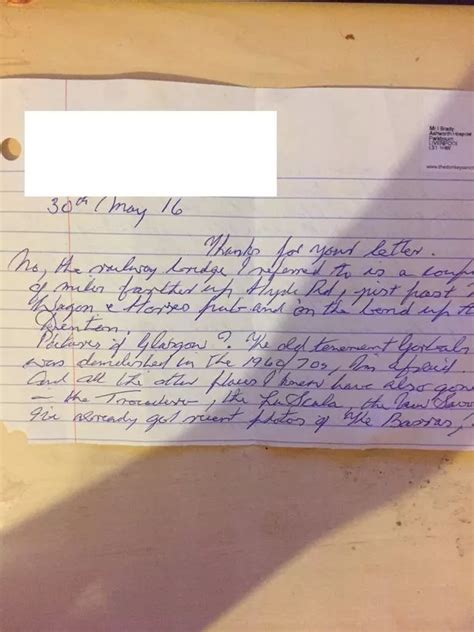 Mr I Brady
Ashworth Hospital
Parkbourn
LIVERPOOL
L31 1HW
www.thedonkeysanc
30th / May 16
Thanks for your letter.
No, the railway bridge I referred to is a coup
of miles farther up Hyde Rd, just past
Wagon & Horses pub and on the bend up t
Denton.
Pictures of Glasgow? The old tenement Gorbals
was demolished in the 1960/70s, I'm afraid.
And all the other places I knew have also gon
– the Trocadero, the La Scala, the New Savo
I've already got recent photos of The Barras,